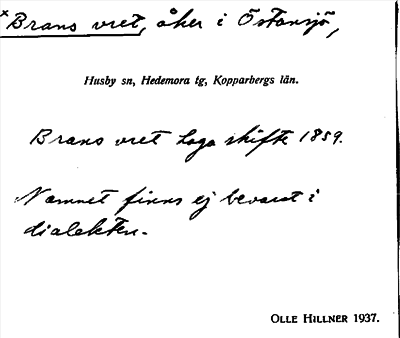 ×Brans vret, åker i Östansjö,
Husby sn, Hedemora tg, Kopparbergs län.
Brans vret Laga skifte 1859.
Namnet finns ej bevarat i
dialekten.
OLLE HILLNER 1937.